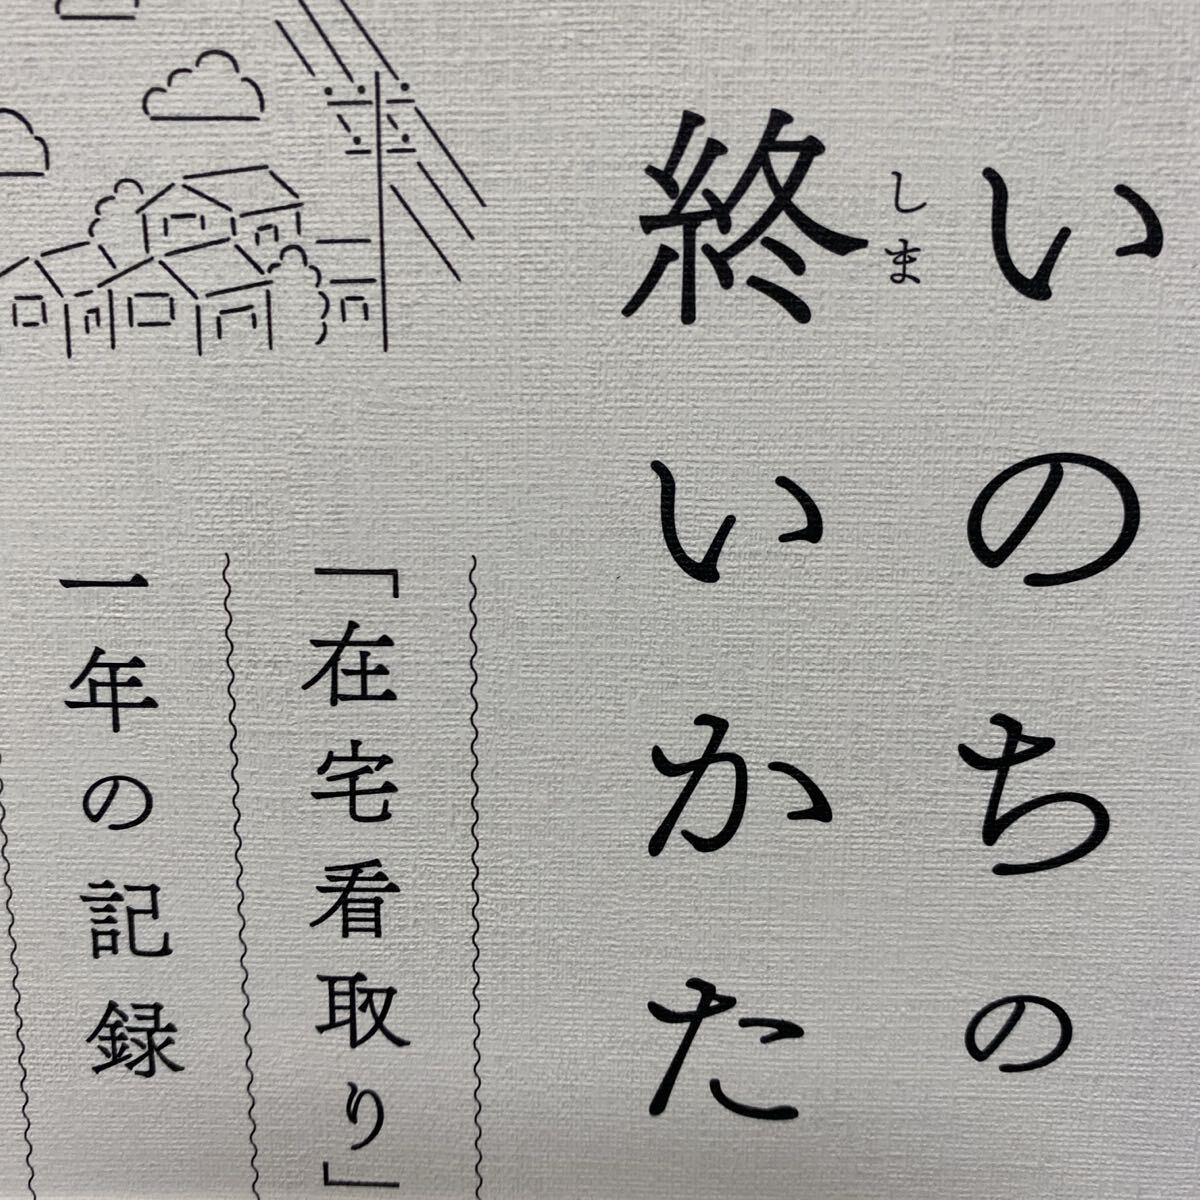 いのちの
終いかた
しま
「在宅看取り」
一年の記録